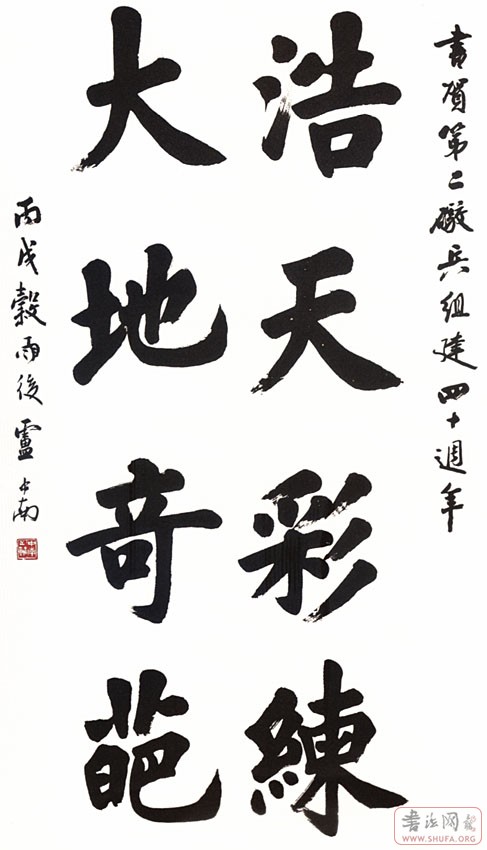 書賀第二礮兵組建四十週年
浩天彩練
大地奇葩
丙戌穀雨後盧中南
書法网
WWW.SHUFA.ORG